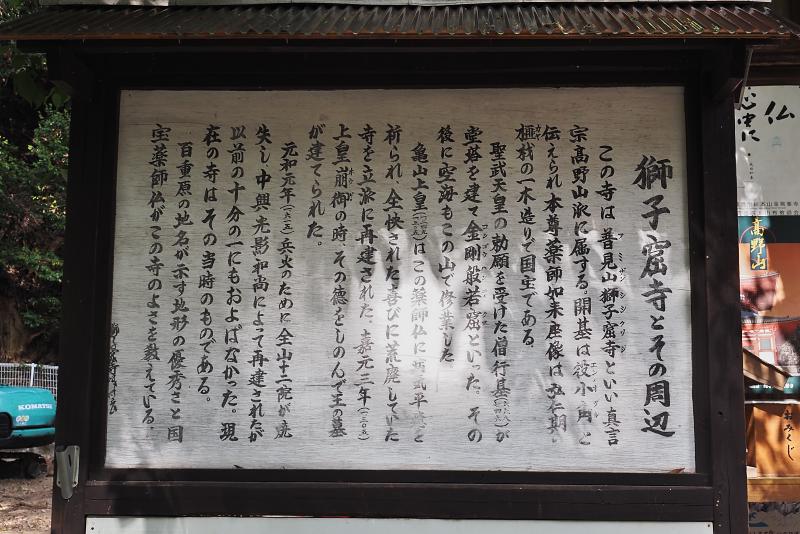 獅子窟寺とその周辺
この寺は普見山獅子窟寺といい真言
フミザンシシクツジ
宗高野山派に属する。開基は役小角と
エンノオヅル
伝えられ本尊薬師如来座像は弘仁期
榧材の一木造りで国宝である。
カヤ
聖武天皇の勅願を受けた僧行基が
堂塔を建て金剛般若窟といった。その
コンゴウハンニャクツ
後に空海もこの山で修業した
亀山上皇はこの薬師仏に
祈られ、全快された喜びに荒廃していた
寺を立派に再建された 嘉元三年(一三〇五)
上皇崩御の時、その徳をしのんで王の墓
が建てられた。
元和元年(一六一五)兵火のために全山十二院が焼
失し中興光影和尚によって再建されたが
以前の十分の一にもおよばなかった。現
在の寺はその当時のものである。
百重原の地名が示す地形の優秀さと国
宝薬師仏がこの寺のよさを教えている。
仏
心中に
高野山
おみくじ
KOMATSU